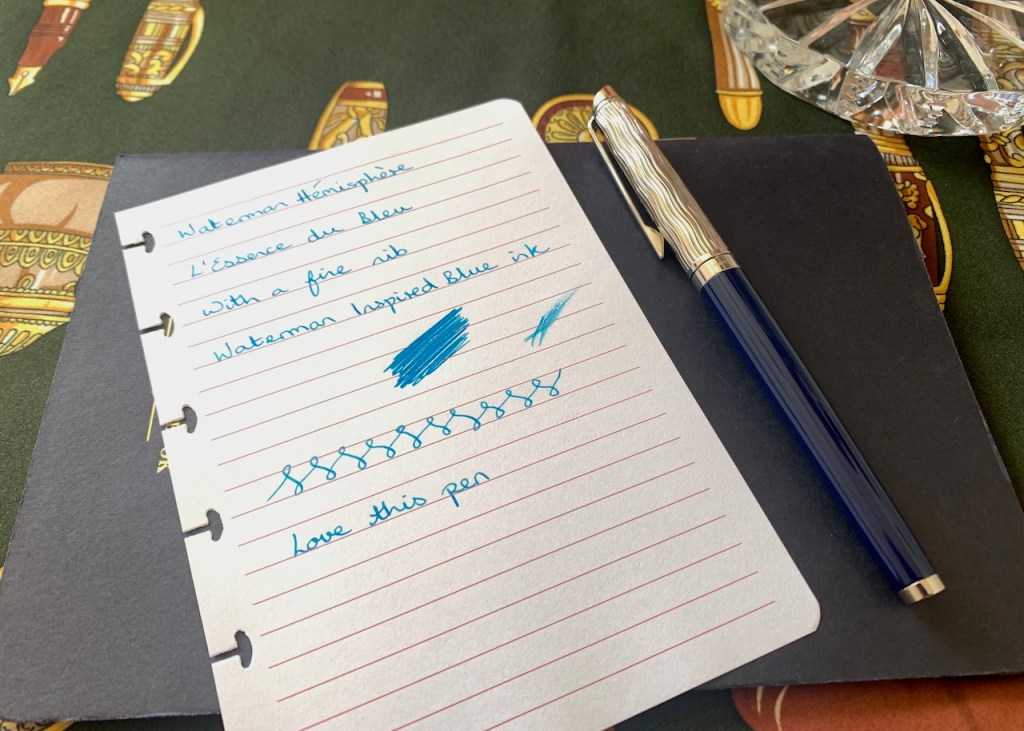 Waterman Hémisphère
L'Essence du Bleu
With a fine nib
Waterman Inspired Blue ink
Love this pen